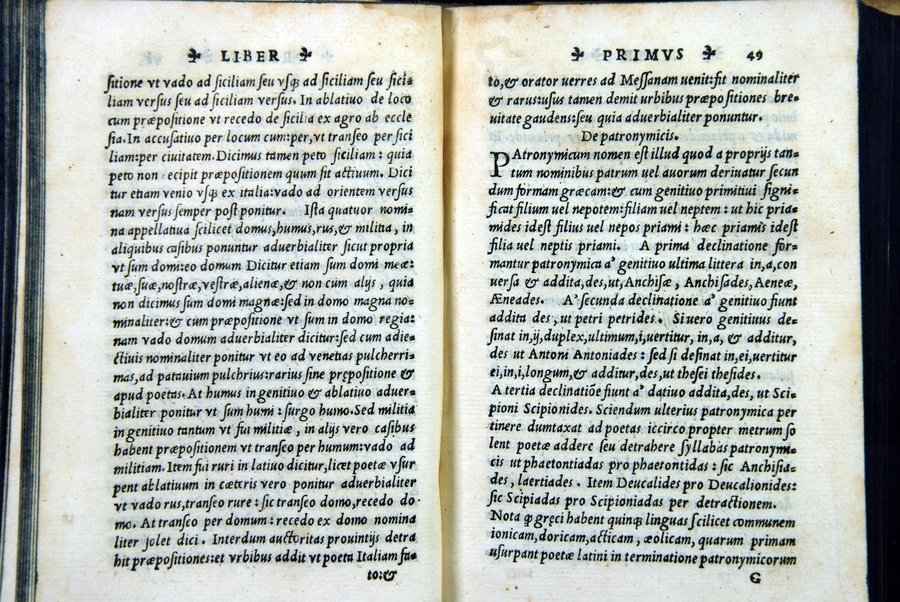 LIBER
ſitione vt vado ad ſiciliam ſeu vſq; ad ſiciliam ſeu ſici⸗
liam verſus ſeu ad ſiciliam verſus. In ablatiuo de loco
cum præpoſitione vt recedo de ſicilia ex agro ab eccle
ſia. In accuſatiuo per locum cum: per, vt tranſeo per ſici
liam: per ciuitatem. Dicimus tamen peto ſiciliam: quia
peto non ecipit præpoſitionem quum ſit actiuum. Dici
tur etiam venio vſq; ex italia: vado ad orientem verſus
nam verſus ſemper poſt ponitur. Iſta quatuor nomi⸗
na appellatiua ſcilicet domus, humus, rus, & militia, in
aliquibus caſibus ponuntur aduerbialiter ſicut propria
vt ſum domi: eo domum Dicitur etiam ſum domi meæ:
tuæ, ſuæ, noſtræ, veſtræ, alienæ, & non cum alijs, quia
non dicimus ſum domi magnæ: ſed in domo magna no⸗
minaliter: & cum præpoſitione vt ſum in domo regia:
nam vado domum aduerbialiter dicitur: ſed cum adie⸗
ctiuis nominaliter ponitur vt eo ad venetias pulcherri⸗
mas, ad patauium pulchrius: rarius ſine prępoſitione &
apud poetas. At humus in genitiuo & ablatiuo aduer⸗
bialiter ponitur vt ſum humi: ſurgo humo. Sed militia
in genitiuo tantum vt fui militiæ, in alijs vero caſibus
habent præpoſitionem vt tranſeo per humum: vado ad
militiam. Item fui ruri in latiuo dicitur, licet poetæ vſur
pent ablatiuum in cæteris vero ponitur aduerbialiter
vt vado rus, tranſeo rure: ſic tranſeo domo, recedo do⸗
mo. At tranſeo per domum: recedo ex domo nomina
liter ſolet dici. Interdum auctoritas prouintijs detra
hit præpoſitiones: et vrbibus addit vt poeta Italiam fa⸗
to: &
PRIMVS 49
to, & orator uerres ad Meſſanam uenit: fit nominaliter
& rarus: uſus tamen demit urbibus præpoſitiones bre⸗
uitate gaudens: ſeu quia aduerbialiter ponuntur.
De patronymicis.
PAtronymicum nomen eſt illud quod a proprijs tan⸗
tum nominibus patrum uel auorum deriuatur ſecun
dum formam græcam: & cum genitiuo primitiui ſigni⸗
ficat filium uel nepotem: filiam uel neptem: ut hic pria⸗
mides ideſt filius uel nepos priami: hæc priamis ideſt
filia uel neptis priami. A prima declinatione for⸗
mantur patronymica a' genitiuo ultima littera in, a, con
uerſa & addita, des, ut, Anchiſæ, Anchiſades, Aeneæ,
Æneades. A' ſecunda declinatione a' genitiuo fiunt
addita des, ut petri petrides. Si uero genitiuus de⸗
ſinat in, ij, duplex, ultimum, i, uertitur, in, a, & additur,
des ut Antoni Antoniades: ſed ſi deſinat in, ei, uertitur
ei, in, i, longum, & additur, des, ut theſei theſides.
A tertia declinatiõe fiunt a' datiuo addita, des, ut Sci⸗
pioni Scipionides. Sciendum ulterius patronymica per
tinere dumtaxat ad poetas iccirco propter metrum ſo
lent poetæ addere ſeu detrahere ſyllabas patronymi⸗
cis ut phaetontiadas pro phaetontidas: ſic Anchiſia⸗
des, laertiades. Item Deucalides pro Deucalionides:
ſic Scipiadas pro Scipioniadas per detractionem.
Nota ꝙ gręci habent quinq; linguas ſcilicet communem
ionicam, doricam, acticam, æolicam, quarum primam
uſurpant poetæ latini in terminatione patronymicorum
G